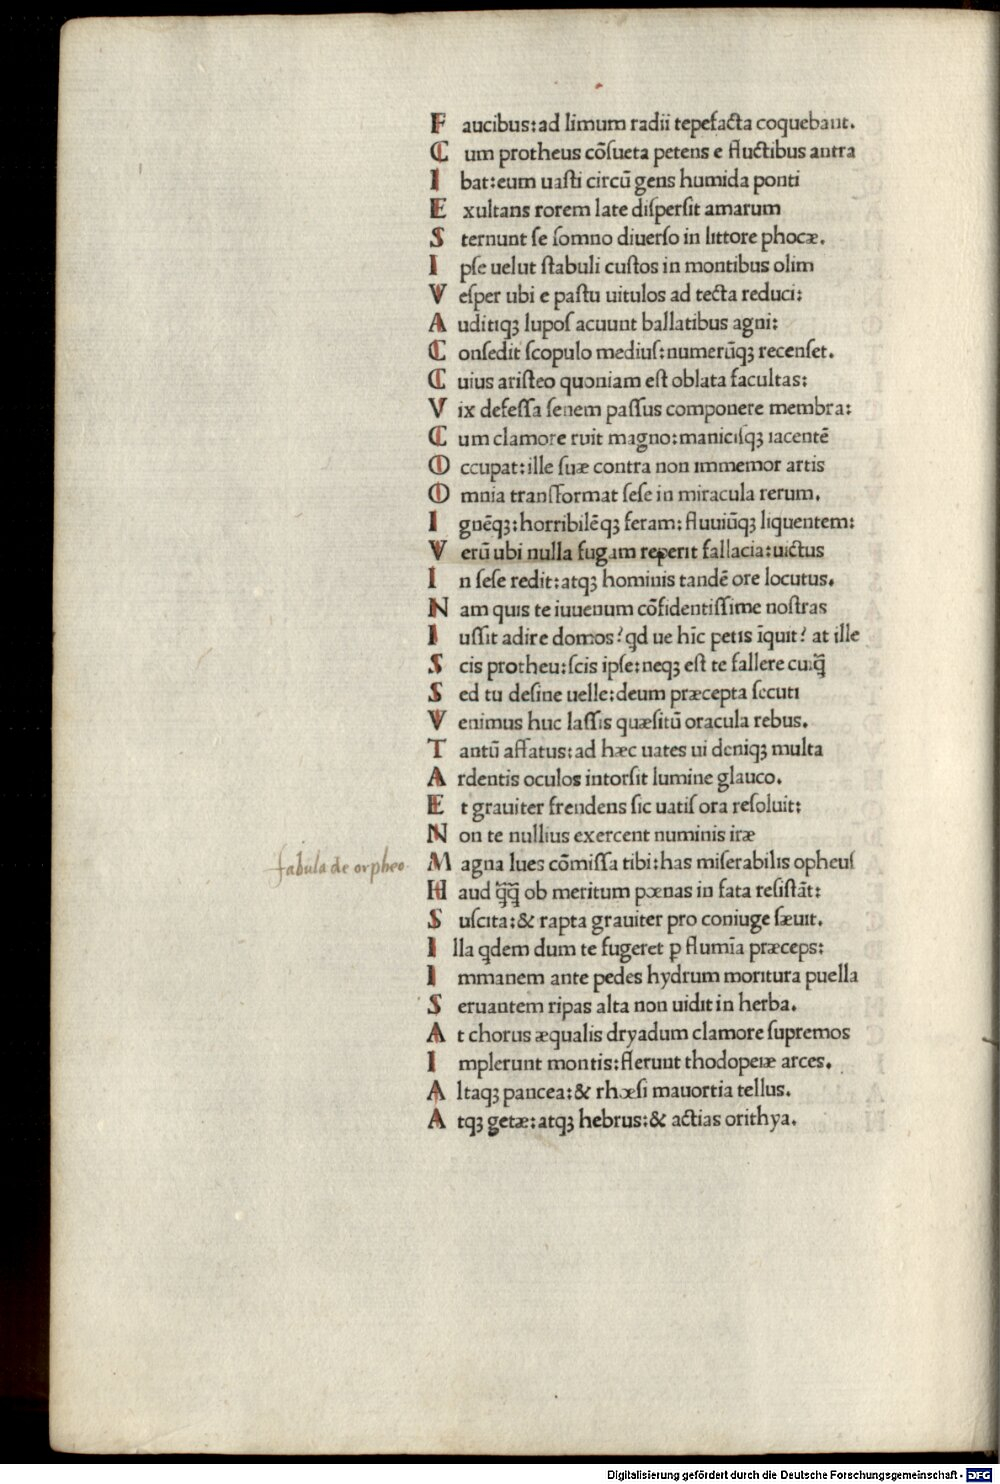 F aucibus:ad limum radii tepefacta coquebant.
C um protheus cõsueta petens e fluctibus antra
I bat:eum uasti circũ gens humida ponti
E xultans rorem late dispersit amarum
S ternunt se somno diuerso in littore phocæ.
I pse uelut stabuli custos in montibus olim
V esper ubi e pastu uitulos ad tecta reduci:
A uditiqꝫ lupos acuunt ballatibus agni:
C onsedit scopulo medius:numerũqꝫ recenset.
C uius aristeo quoniam est oblata facultas:
V ix defessa senem passus componere membra:
C um clamore ruit magno:manicisqꝫ iacentẽ
O ccupat:ille suæ contra non immemor artis
O mnia transformat sese in miracula rerum.
I gnẽqꝫ:horribilẽqꝫ feram:fluuiũqꝫ liquentem:
V erũ ubi nulla fugam reperit fallacia:uictus
I n sese redit:atqꝫ hominis tandẽ ore locutus.
N am quis te iuuenum cõfidentissime nostras
I ussit adire domos? qd ue hĩc petis ĩquit? at ille
S cis protheu:scis ipse:neqꝫ est te fallere cuiq̃
S ed tu desine uelle:deum præcepta secuti
V enimus huc lassis quæsitũ oracula rebus.
T antũ affatus:ad hæc uates ui deniqꝫ multa
A rdentis oculos intorsit lumine glauco.
E t grauiter frendens sic uatis ora resoluit:
N on te nullius exercent numinis iræ
fabula de orpheo.
M agna lues cõmissa tibi:has miserabilis opheus
H aud q̃q̃ ob meritum pœnas in fata resistãt:
S uscita:& rapta grauiter pro coniuge sæuit.
I lla qdem dum te fugeret ꝑ flumĩa præceps:
I mmanem ante pedes hydrum moritura puella
S eruantem ripas alta non uidit in herba.
A t chorus æqualis dryadum clamore supremos
I mplerunt montis:flerunt thodopeiæ arces.
A ltaqꝫ pancea:& rhœsi mauortia tellus.
A tqꝫ getæ:atqꝫ hebrus:& actias orithya.
Digitalisierung gefördert durch die Deutsche Forschungsgemeinschaft - DFG